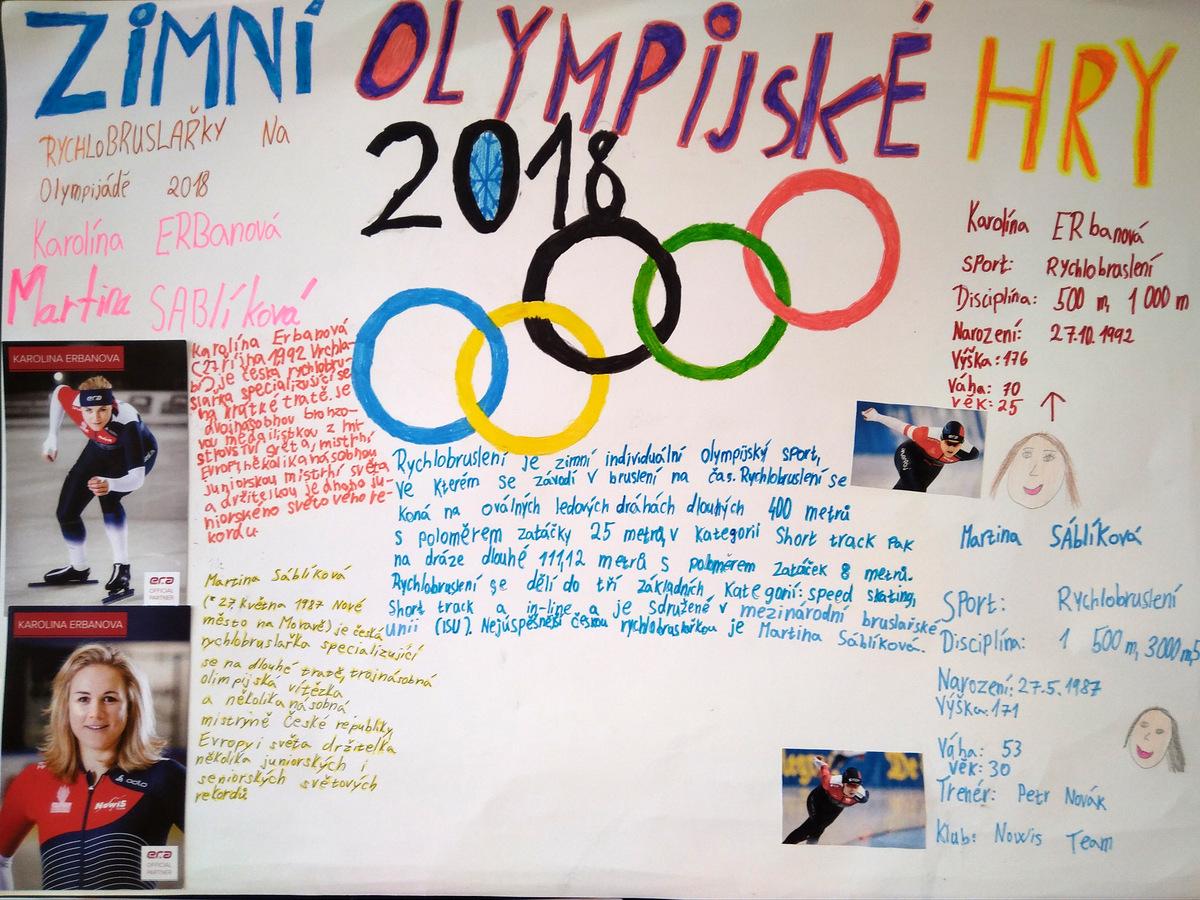 ZiMNÍ OLYMPijSKÉ HRY
2018
RYCHLoBRUSLAŘKY Na
Olympijádě 2018
Karolína ERBanová
Martina SABLíková
KAROLINA ERBANOVA
era
era
OFFICIAL
PARTNER
KAROLINA ERBANOVA
Nowis
era
OFFICIAL
PARTNER
Karolína Erbanová
(27. října 1992 Vrchla-
bí) je česká rychlobru-
slařka specializující se
na krátké tratě. je
dvojnásobnou bronzo-
vou medailistkou z mi-
strovství světa, mistrní
Evropy, několikanásobnou
juniorskou mistrní světa
a držitelkou jednoho ju-
niorského světového re-
kordu
Martina Sáblíková
(* 27. Května 1987 Nové
město na Moravě) je česká
rychlobruslařka specializující
se na dlouhé tratě, trojnásobná
olimpijská vítězka
a několikanásobná
mistryně České republiky
Evropy i světa držitelka
několika juniorských i
seniorských světových
rekordů
Rychlobruslení je zimní individuální olympijský sport,
ve kterém se závodí v bruslení na čas. Rychlobruslení se
koná na oválných ledových dráhách dlouhých 400 metrů
s poloměrem zatáčky 25 metrů, v kategorii Short track pak
na dráze dlouhé 111,12 metrů s poloměrem zatáček 8 metrů.
Rychlobruslení se dělí do tří základních kategorií: speed skating,
Short track a in-line a je sdružené v mezinárodní bruslařské
unii (ISU). Nejúspěšnější českou rychlobruslařkou je Martina Sáblíková.
Karolína ERbanová
sport: Rychlobraslení
Disciplína: 500 m, 1 000 m
Narození: 27.10.1992
Výška: 176
Váha: 70
věk: 25
Martina SÁBlíková
Sport: Rychlobruslení
Disciplína: 1 500 m, 3000 m, 5
Narození: 27.5.1987
Výška: 171
Váha: 53
věk: 30
Trenér: Petr Novák
Klub: Nowis Team